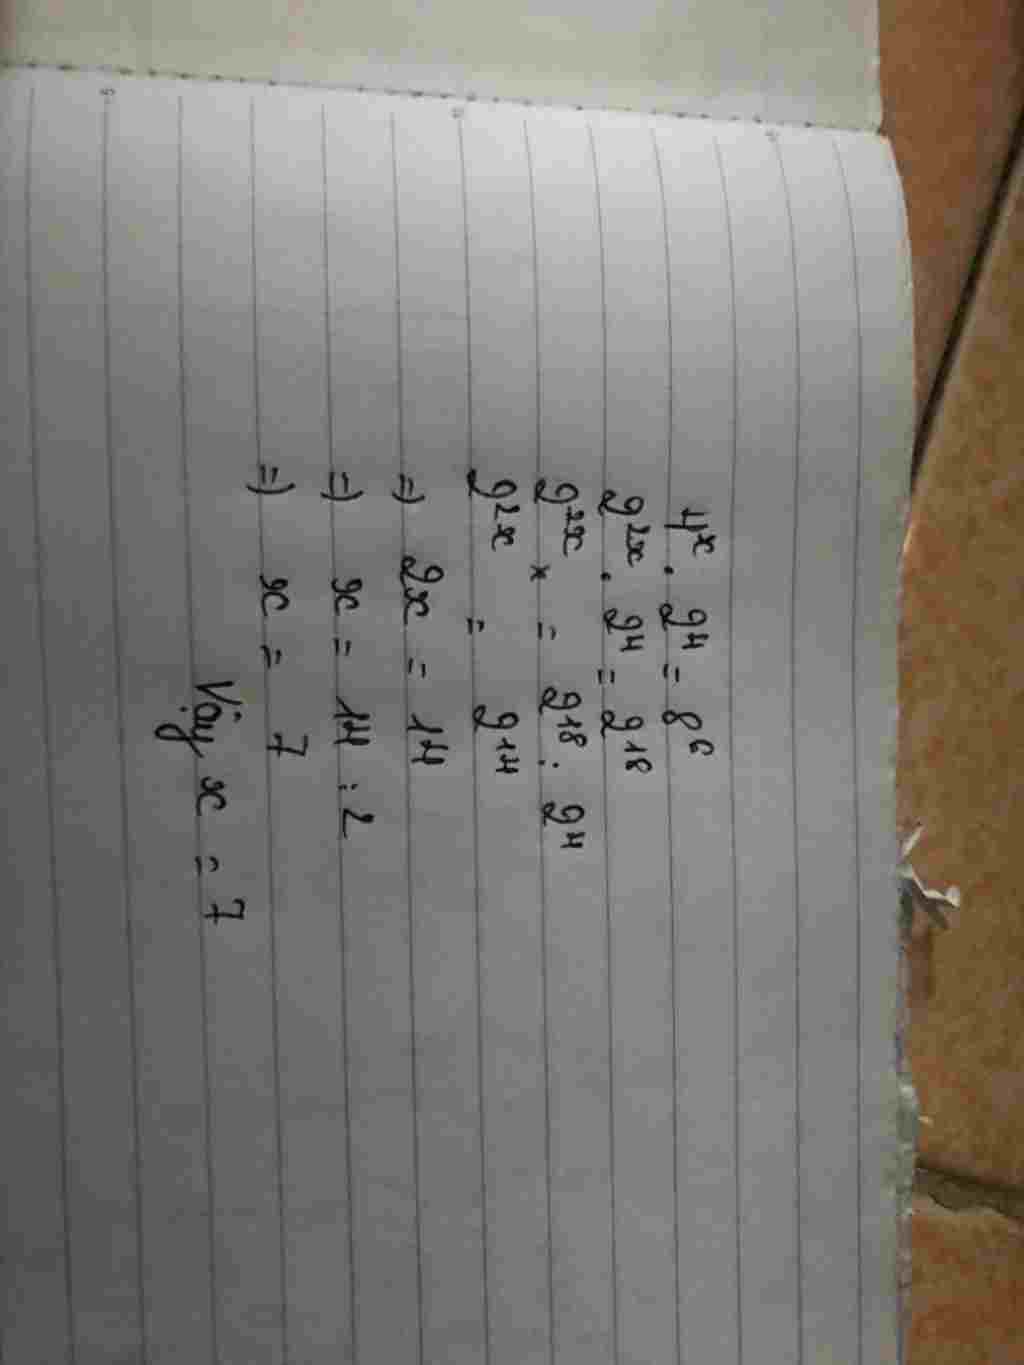 4ˣ . 2⁴ = 8⁶
2²ˣ . 2⁴ = 2¹⁸
2²ˣ × = 2¹⁸ : 2⁴
2²ˣ = 2¹⁴
=) 2x = 14
=) x = 14 : 2
=) x = 7
Vậy x = 7